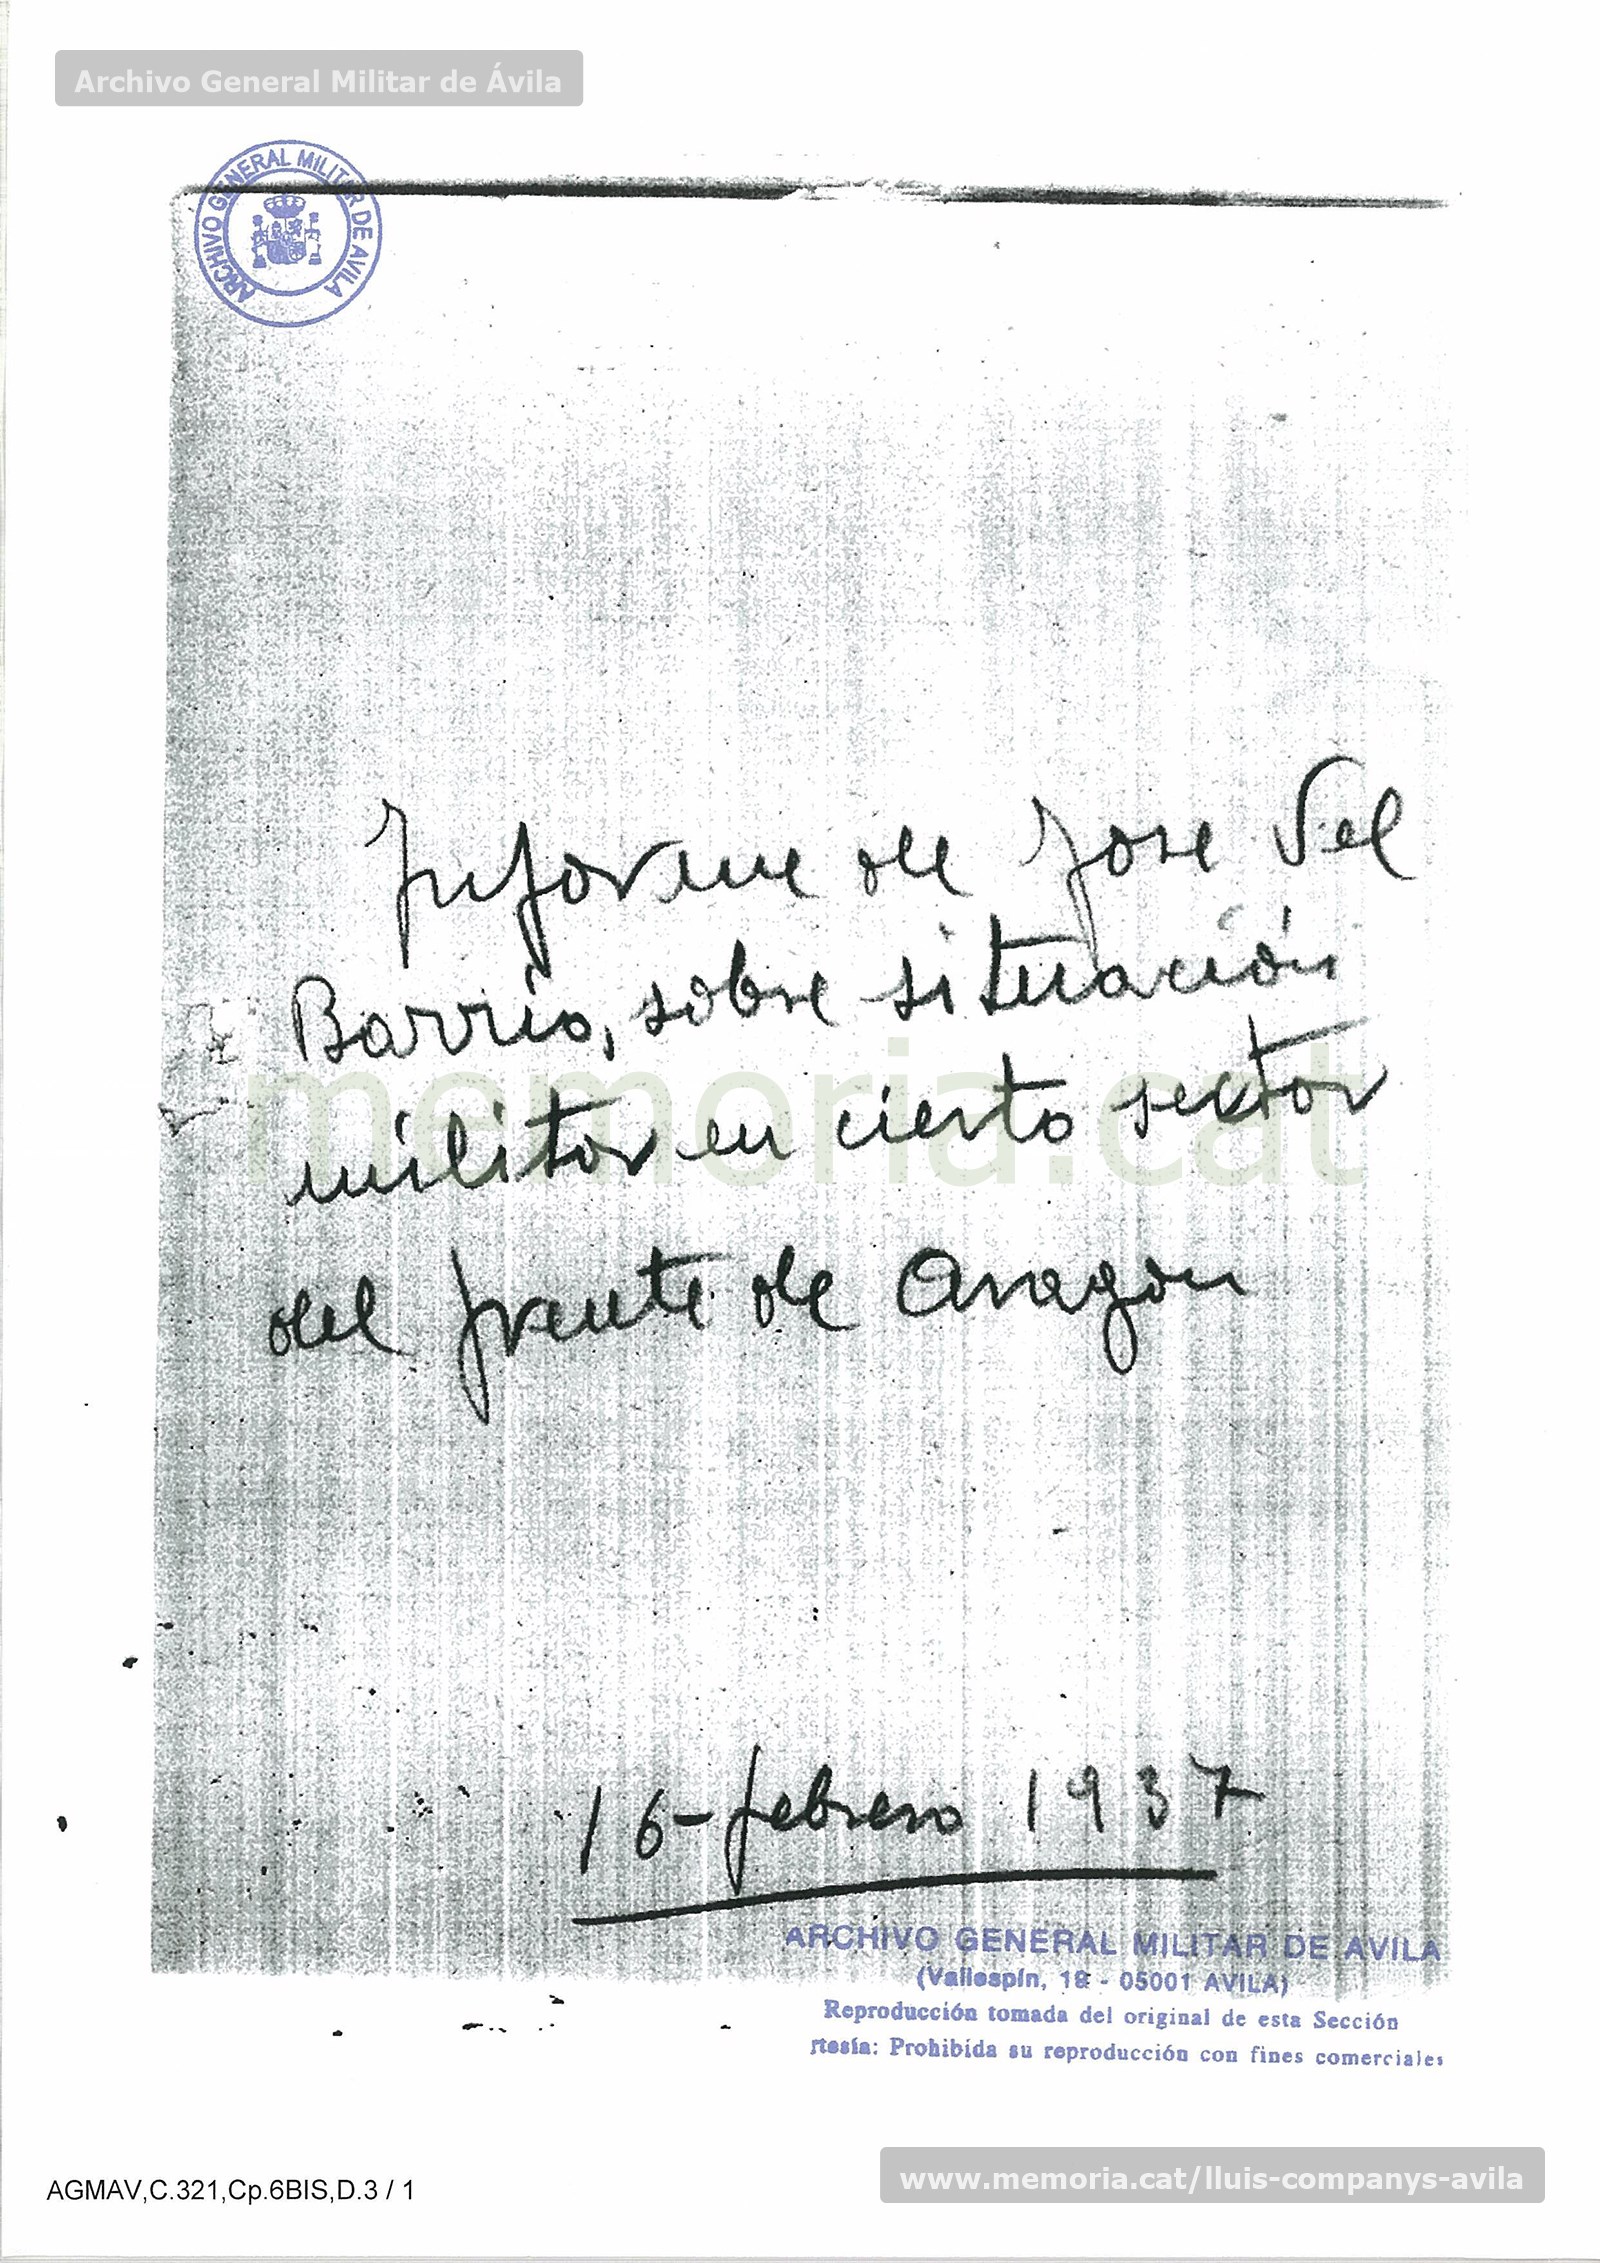 Archivo General Militar de Ávila
ARCHIVO GENERAL MILITAR DE AVILA
Informe de Jose del
Barrio, sobre situación
militar en cierto sector
del frente de Aragon
memoria.cat
16-febrero 1937
ARCHIVO GENERAL MILITAR DE AVILA
(Vallespín, 19 - 05001 AVILA)
Reproducción tomada del original de esta Sección
rtesía: Prohibida su reproducción con fines comerciales
AGMAV,C.321,Cp.6BIS,D.3 / 1
www.memoria.cat/lluis-companys-avila